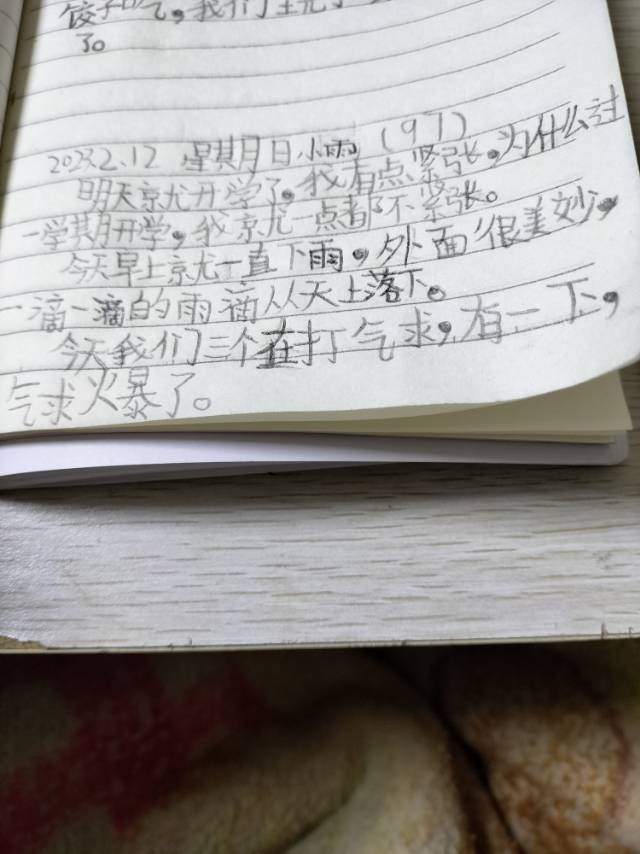 饺子吃，我们
了。
2023.2.12 星期日 小雨 (97)
明天就开学了。我有点紧张，为什么过
一学期开学，我就一点都不紧张。
今天早上就一直下雨，外面很美妙，
一滴一滴的雨滴从天上落下。
今天我们三个在打气求，有一下，
气求火暴了。